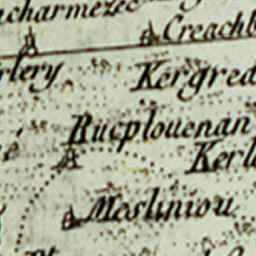 acharmezec
Creachb
rlery
Kergred
Rucplouenan
é
Kerl
Mesliniou